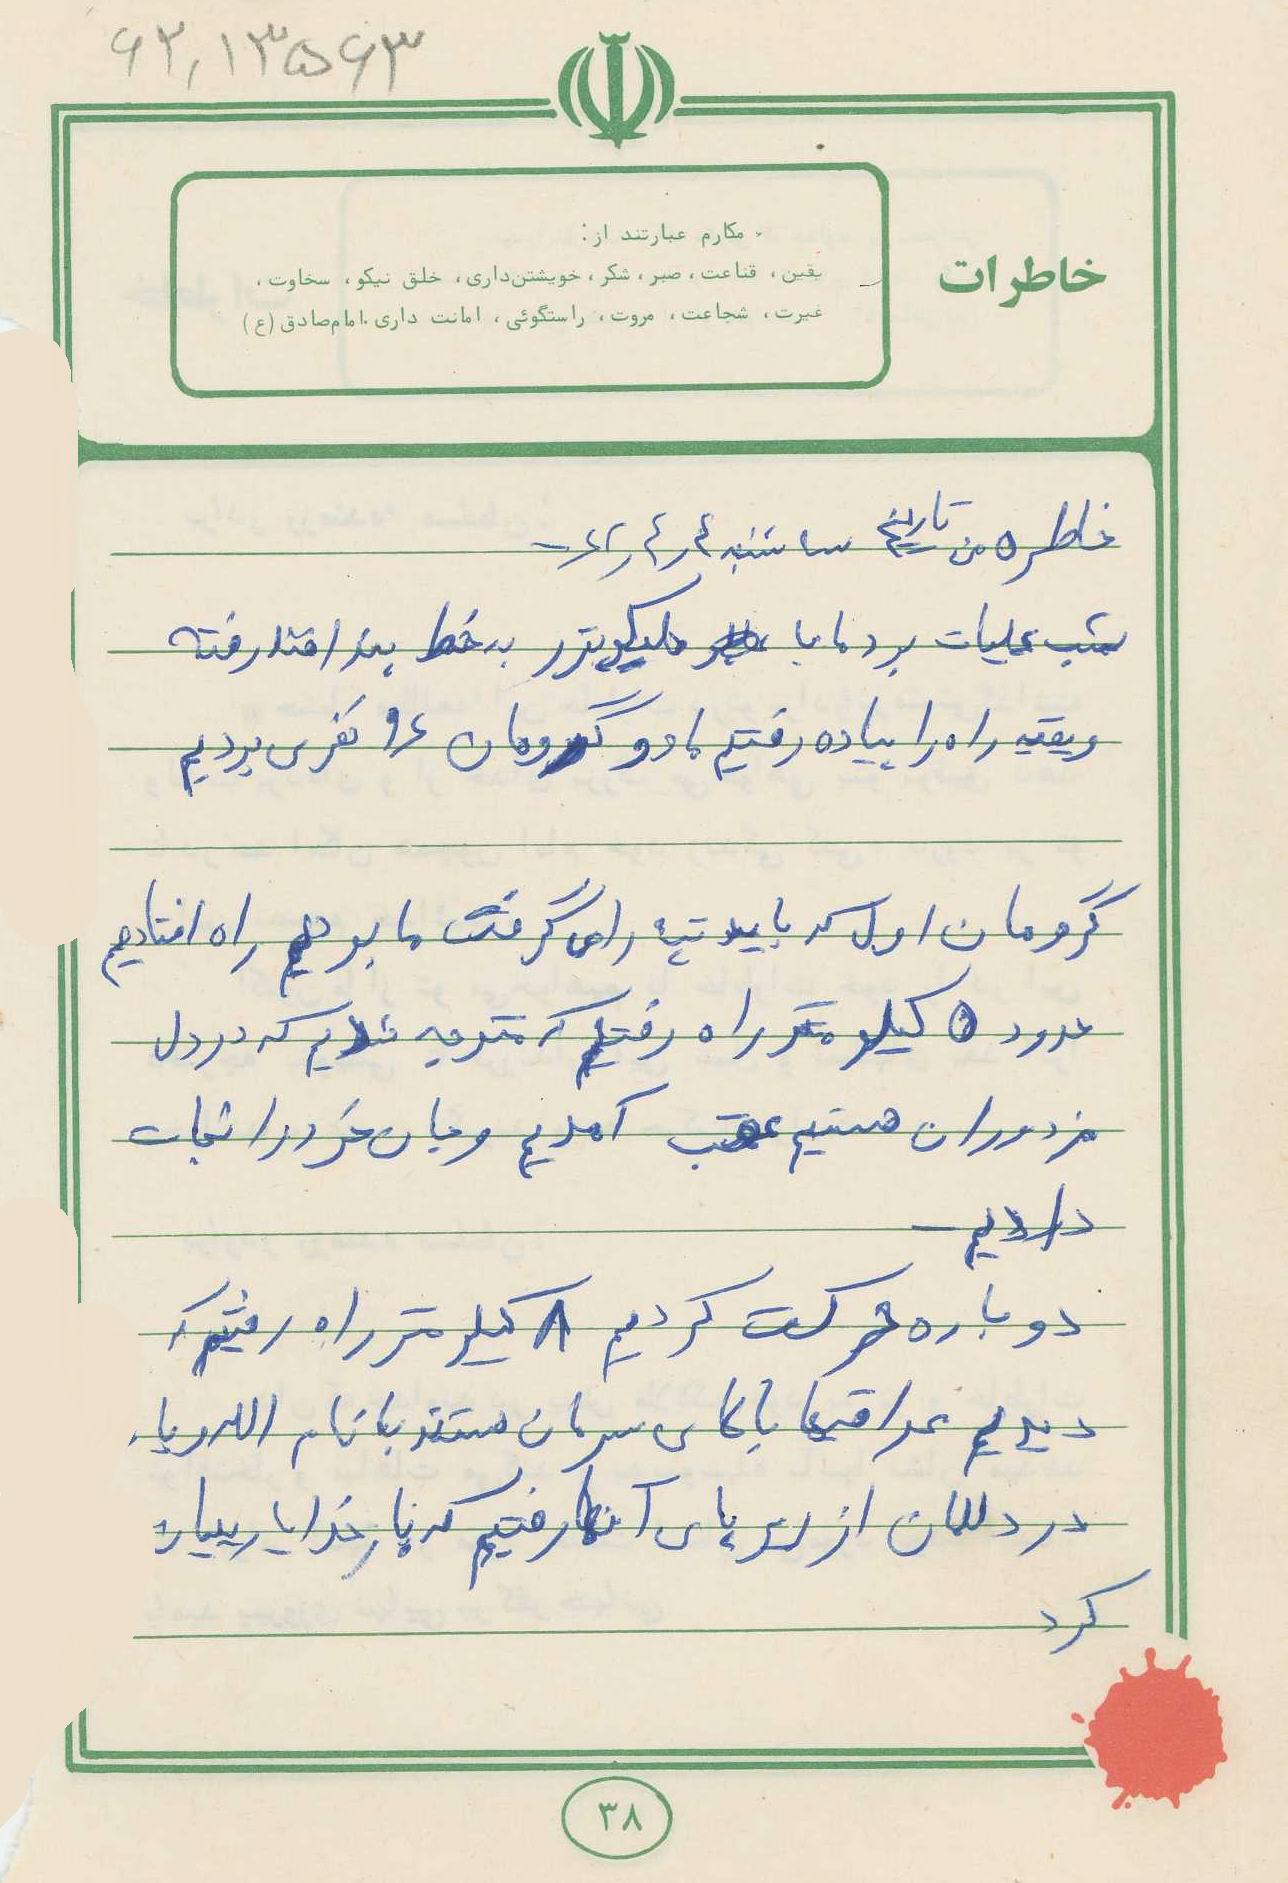 ۶۲,۱۳۵۶۳
خاطرات
۰ مکارم عبارتند از:
یقین، قناعت، صبر، شکر، خویشتن‌داری، خلق نیکو، سخاوت،
غیرت، شجاعت، مروت، راستگوئی، امانت داری.امام‌صادق(ع)
خاطره من تاریخ سه شنبه
شب عملیات بود ما با هلیکوپتر به خط پدافند رفته
و بقیه راه را پیاده رفتیم ما دو گروهان ۹۶ نفری بودیم
گروهان اول که باید تپه را می گرفت ما بودیم راه افتادیم
حدود ۵ کیلو متر راه رفتیم که متوجه شدیم که در دل
مزدوران هستیم عقب آمدیم و جان خود را نجات
دادیم –
دو باره حرکت کردیم ۸ کیلو متر راه رفتیم که
دیدیم عراقیها بالای سرمان هستند با نام الله و یاد
در دلمان از زیر پای آنها رفتیم که باز خدا یاریمان
کرد
۳۸